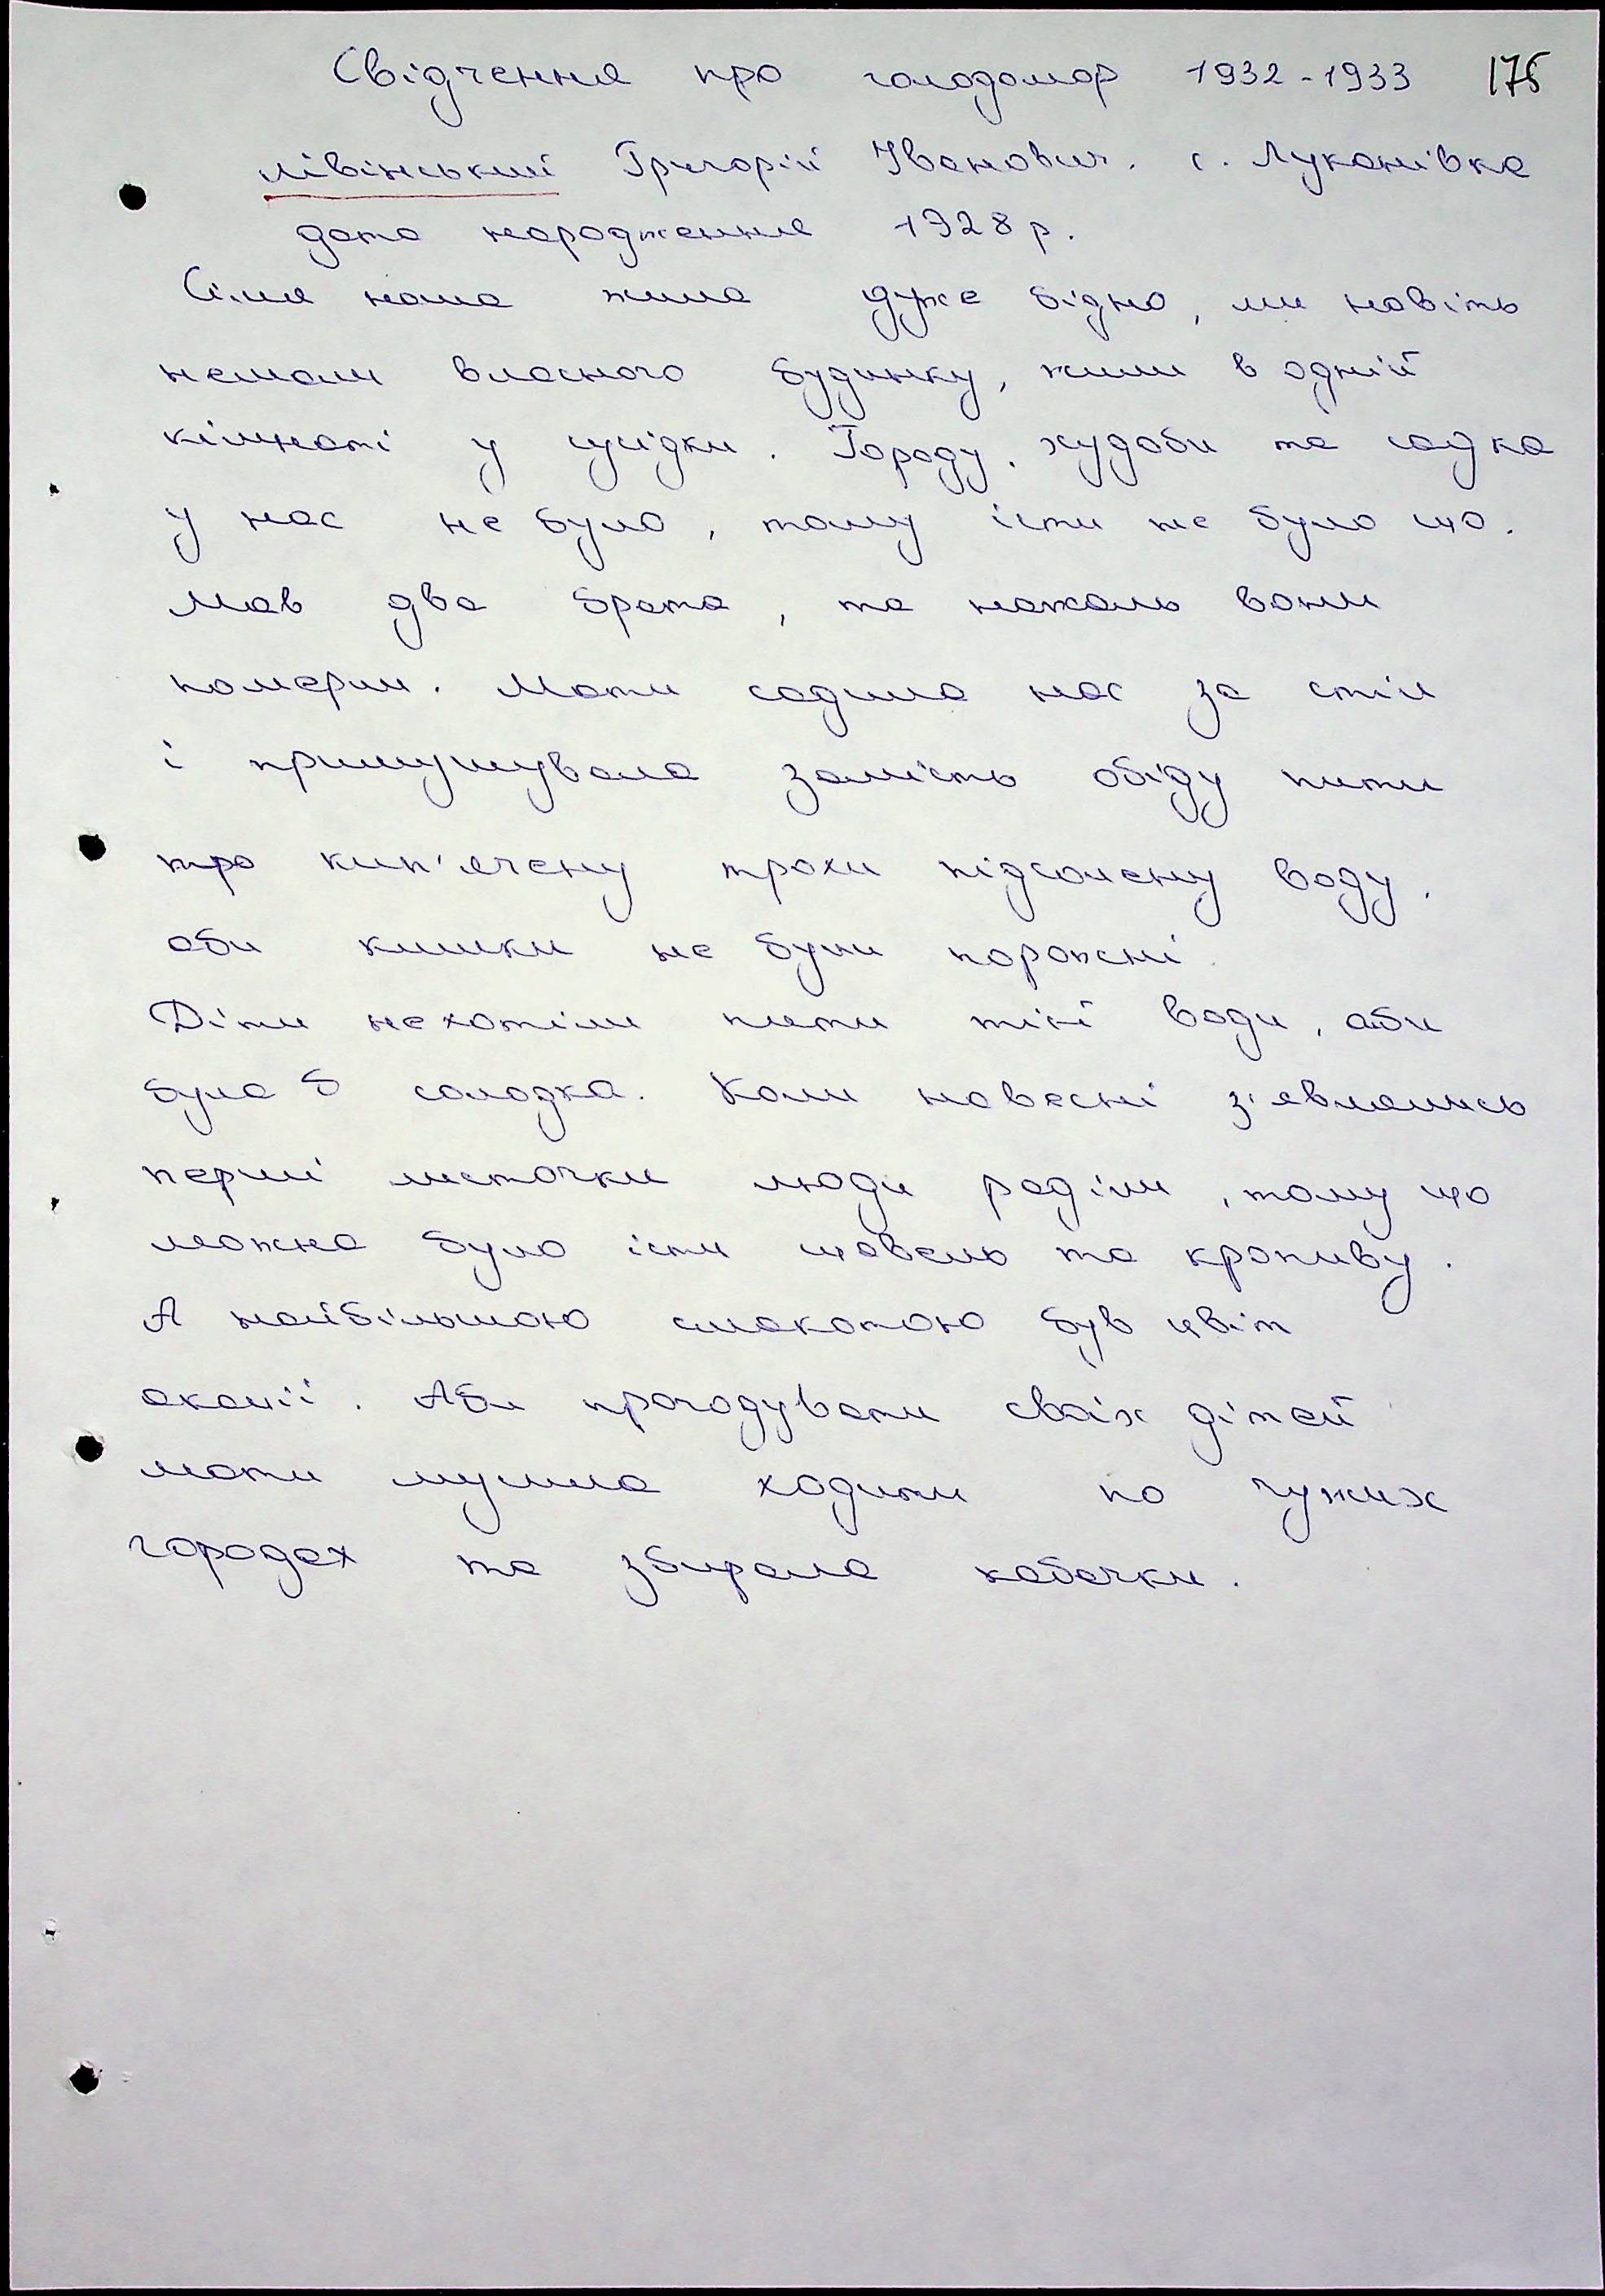 Свідчення про голодомор 1932-1933 175
Лівінський Григорій Іванович. с. Луканівка
дата народження 1928 р.
Сім'я наша жила дуже бідно, ми навіть
немали власного будинку, жили в одній
кімнаті у сусідки. Городу, худоби та садка
у нас не було, тому їсти не було що.
Мав два брата, та нажаль вони
померли. Мати садила нас за стіл
і примушувала замість обіду пити
тро кип'ячену трохи підсолену воду,
аби кишки не були порожні.
Діти нехотіли пити тієї води, аби
була б солодка. Коли навесні з'являлись
перші листочки люди раділи, тому що
можна було їсти щавель та кропиву.
А найбільшою смакотою був цвіт
акації. Аби прогодувати своїх дітей
мати мусила ходити по чужих
городах та збирала кабачки.